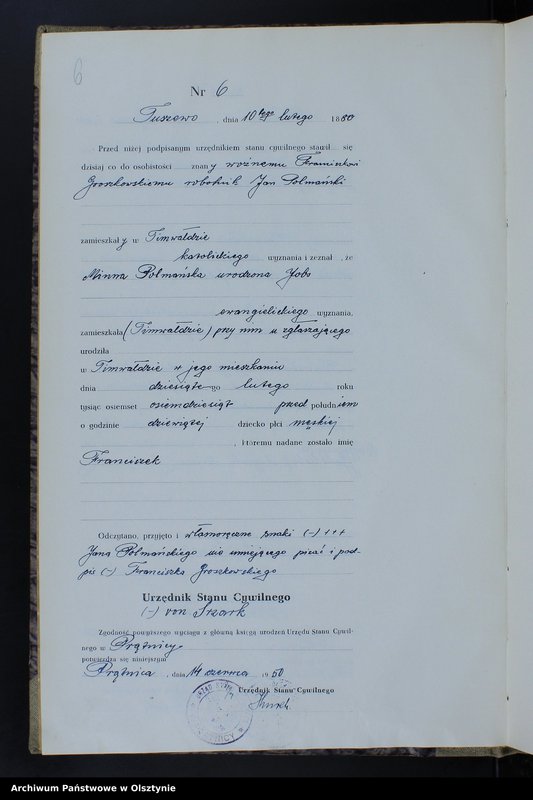 6
Nr 6
Tuszewo, dnia 10 tego lutego 1880
Przed niżej podpisanym urzędnikiem stanu cywilnego stawił się
dzisiaj co do osobistości znany woźnemu Franciszkowi
Groszkowskiemu robotnik Jan Polmański
zamieszkały w Timwałdzie
katolickiego wyznania i zeznał, że
Minna Polmańska urodzona Jobs
ewangielickiego wyznania,
zamieszkała (Timwałdzie) przy nim u zgłaszającego
urodziła
w Timwałdzie w jego mieszkaniu
dnia dziesiątego lutego roku
tysiąc osiemset osiemdziesiąt przed południem
o godzinie dziewiątej dziecko płci męskiej
, któremu nadane zostało imię
Franciszek
Odczytano, przyjęto i własnoręczne znaki (-) +++
Jana Polmańskiego nie umiejącego pisać i pod-
pis (-) Franciszka Groszkowskiego
Urzędnik Stanu Cywilnego
(-) von
Zgodność powyższego wyciągu z główną księgą urodzeń Urzędu Stanu Cywil-
nego w Prątnicy
potwierdza się niniejszym
Prątnica, dnia 14 czerwca 1950
Urzędnik Stanu Cywilnego
Archiwum Państwowe w Olsztynie